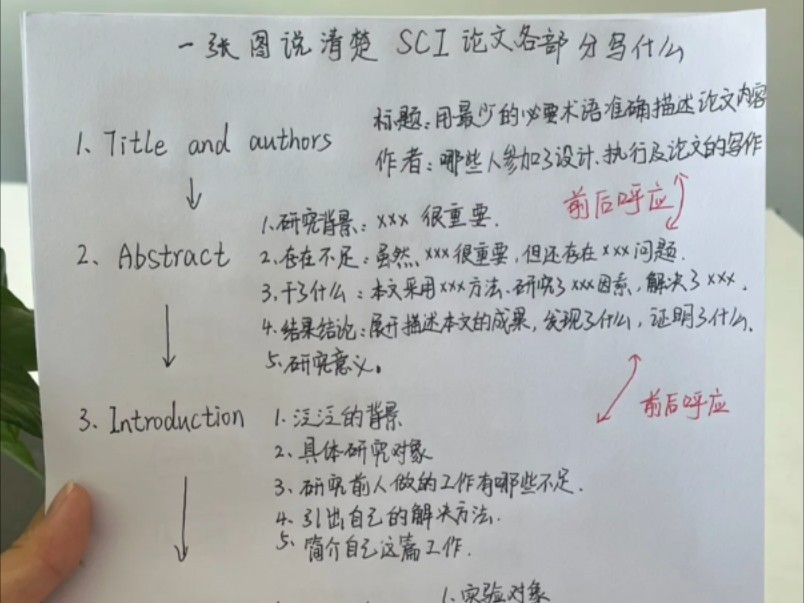 一张图说清楚 SCI 论文各部分写什么
1、Title and authors
标题：用最少的必要术语准确描述论文内容
作者：哪些人参加了设计、执行及论文的写作
前后呼应
2、Abstract
1.研究背景：xxx 很重要.
2.存在不足：虽然、xxx很重要，但还存在xxx问题.
3.干了什么：本文采用xxx方法、研究了xxx因素，解决了xxx.
4.结果结论：展开描述本文的成果，发现了什么，证明了什么.
5.研究意义。
前后呼应
3、Introduction
1.泛泛的背景
2、具体研究对象
3、研究前人做的工作有哪些不足.
4.引出自己的解决方法.
5.简介自己这篇工作.
1.实验对象